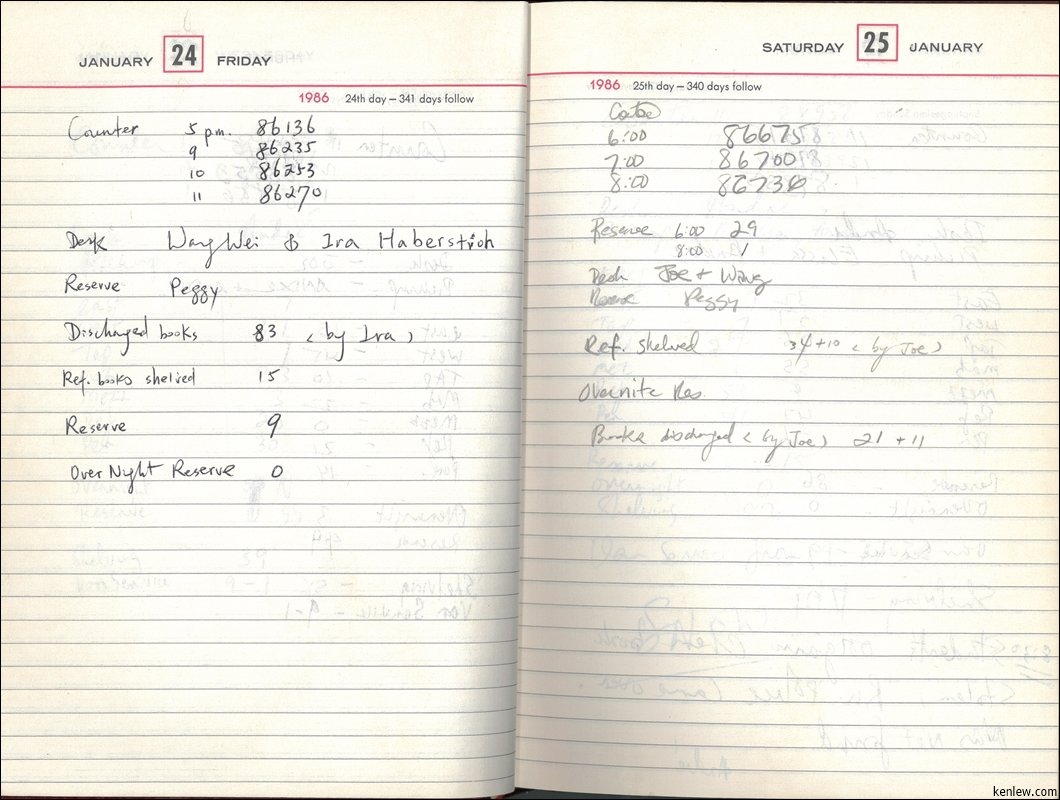 JANUARY 24 FRIDAY
1986 24th day — 341 days follow
Counter 5 pm. 86136
9 86235
10 86253
11 86270
Desk Wang Wei & Ira Haberstroh
Reserve Peggy
Discharged books 83 (by Ira)
Ref. books shelved 15
Reserve 9
OverNight Reserve 0
SATURDAY 25 JANUARY
1986 25th day — 340 days follow
6:00
7:00 86700
8:00 86736
Reserve 6:00 29
8:00 1
Desk Joe + Wang
Reserve Peggy
Ref. shelved 34+10 (by Joe)
Overnite Res
Books discharged (by Joe) 21 + 11
kenlew.com